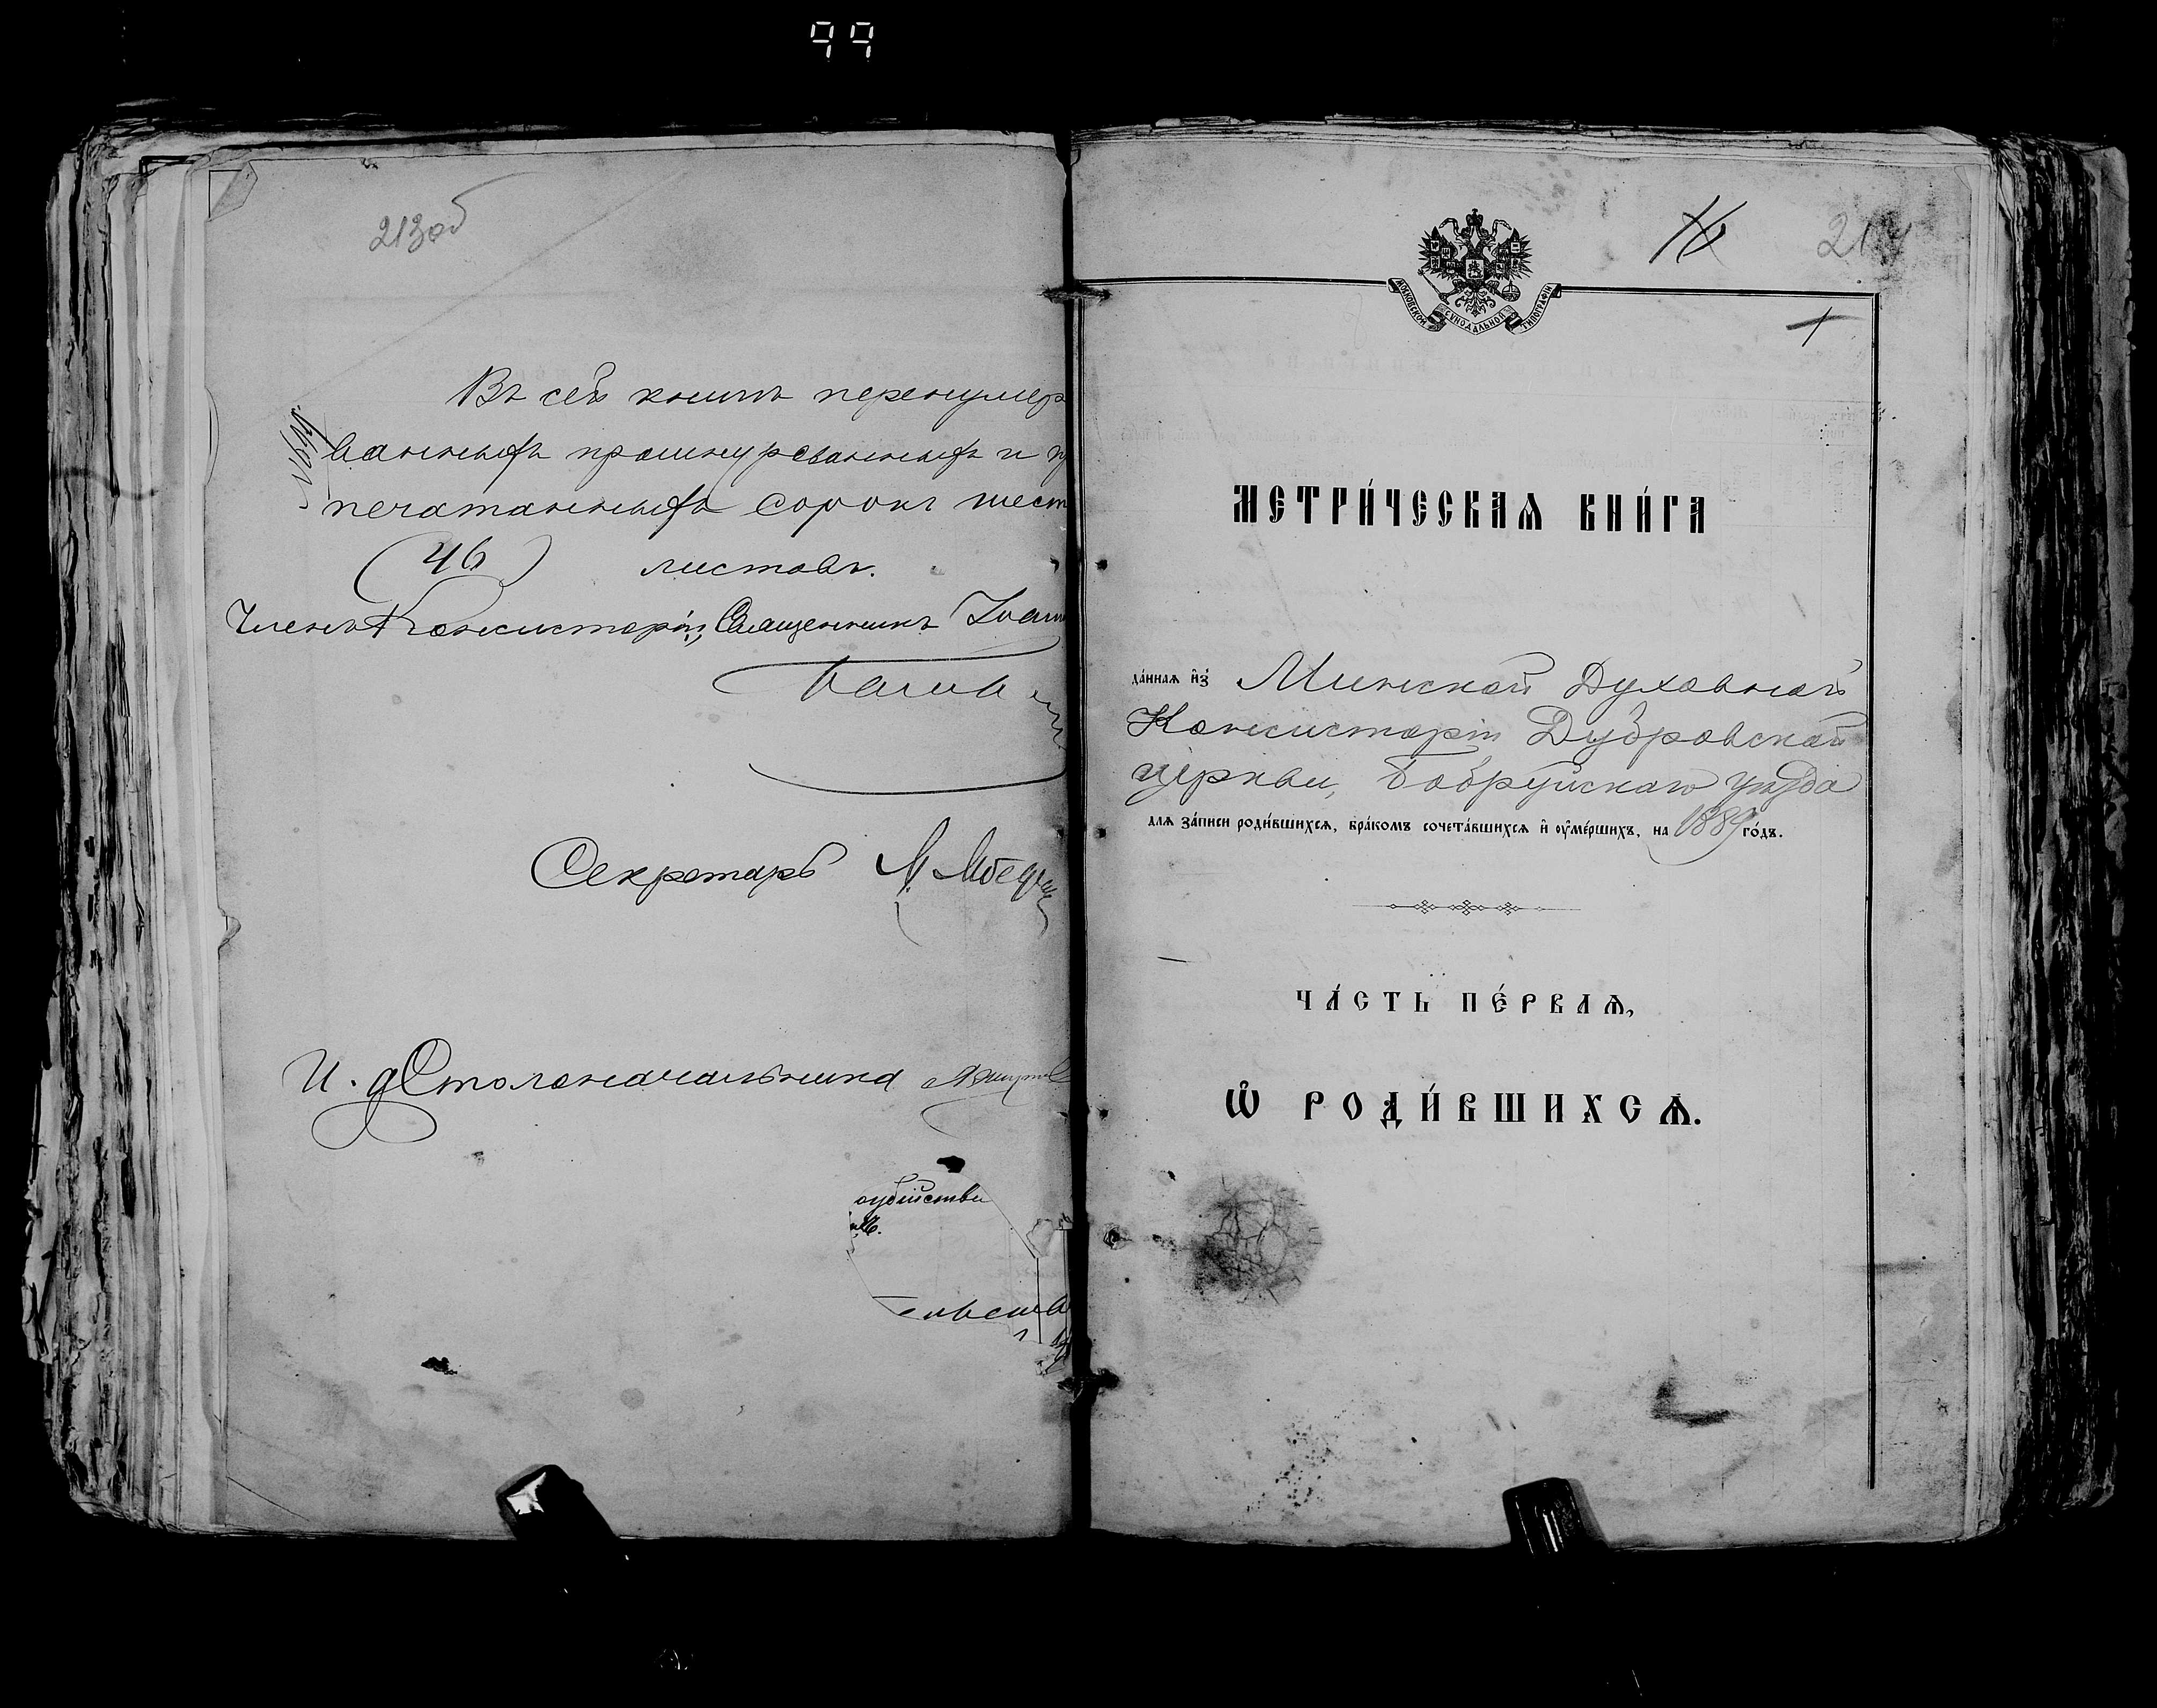 99
213об
Въ сей книгѣ перенумеро
ванныхъ прошнурованныхъ и
печатанныхъ сорокъ шест
(46) листовъ.
Членъ Консисторіи, Священникъ Іоанн
Секретарь
И. д. Столоначальника
214
МОСКОВСКОЙ СѴНОДАЛЬНОЙ ТИПОГРАФІИ
1
МЕТРИ́ЧЕСКАѦ КНИ́ГА
да́ннаѧ и҆з̾ Минской Духовной
Консисторіи Дубровской
церкви, Бобруйскаго уѣзда
длѧ за́писи роди́вшихсѧ, бра́комъ сочета́вшихсѧ и҆ ᲂу҆ме́ршихъ, на 1889 го́дъ.
ЧА́СТЬ ПЕ́РВАѦ,
Ѽ РОДИ́ВШИХСѦ.